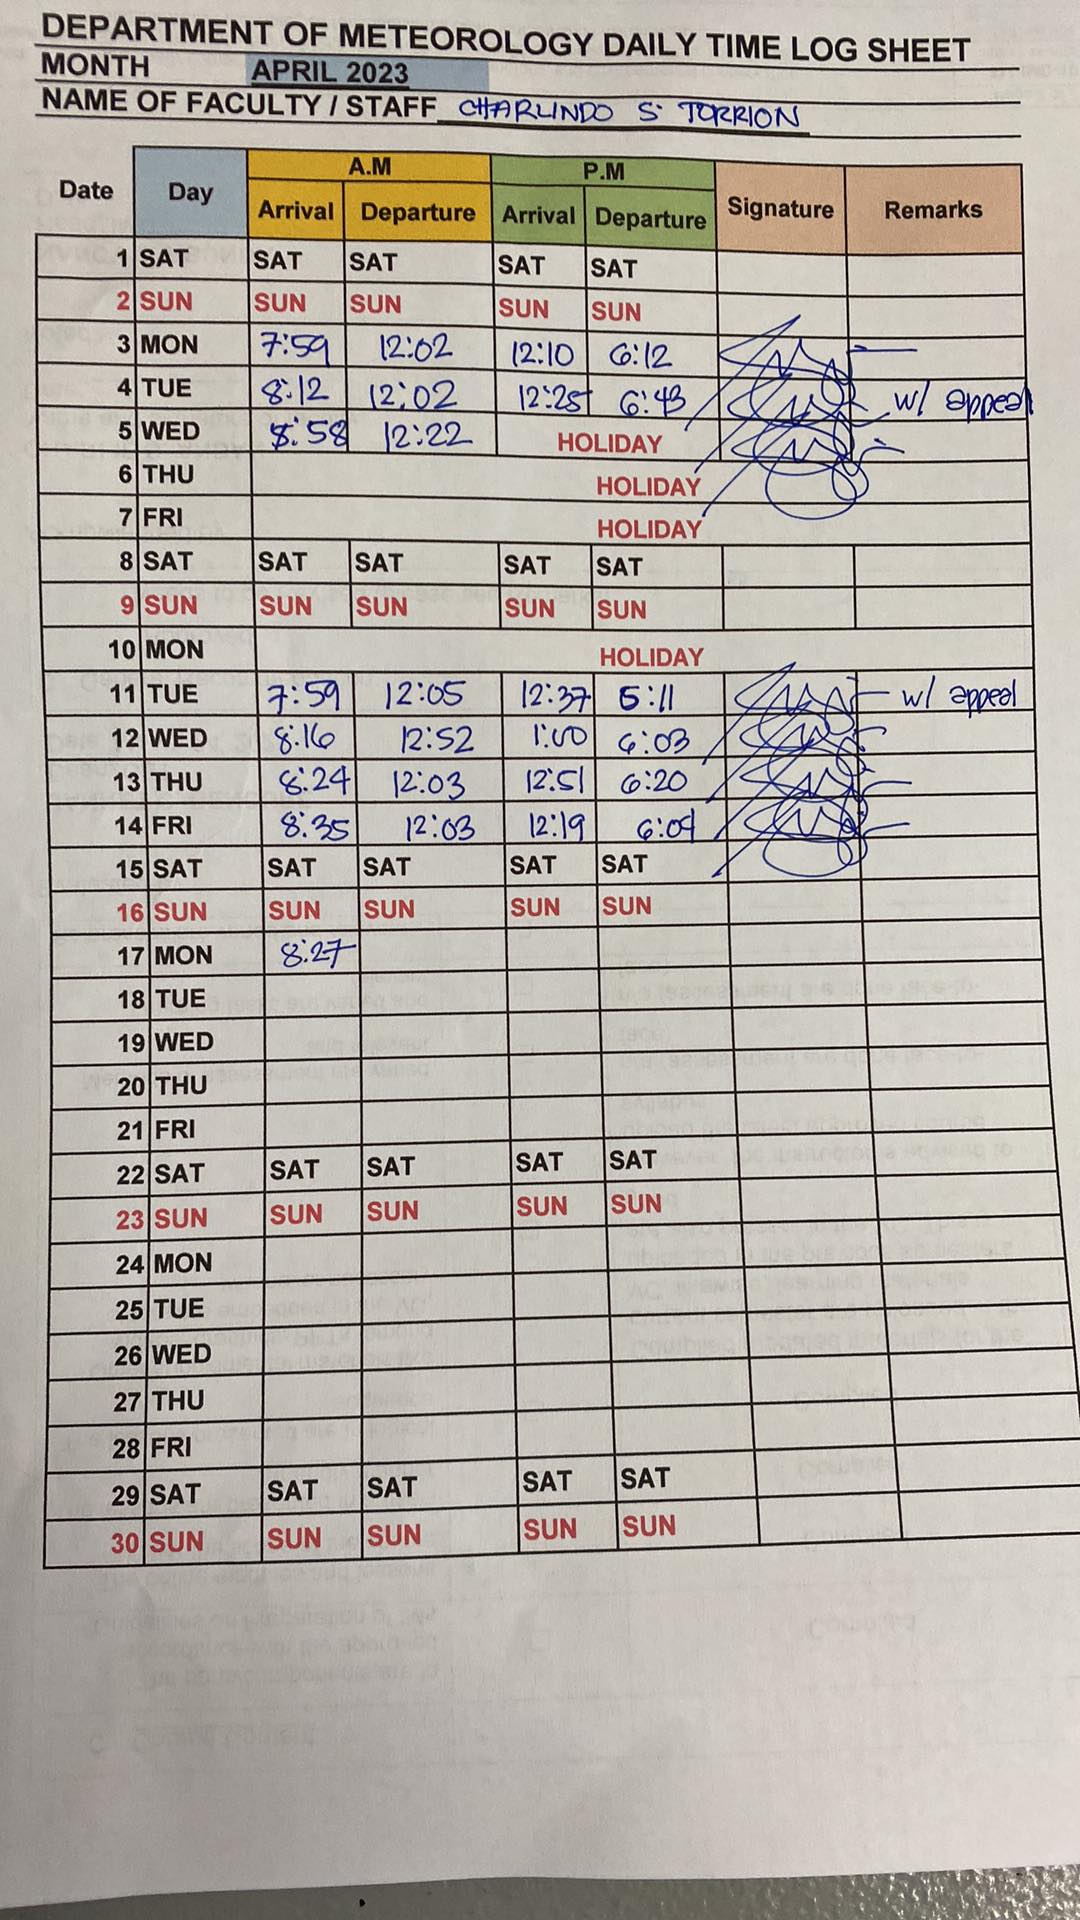 DEPARTMENT OF METEOROLOGY DAILY TIME LOG SHEET
MONTH APRIL 2023
NAME OF FACULTY / STAFF CHARLINDO S. TORRION
A.M P.M
Date Day Arrival Departure Arrival Departure Signature Remarks
1 SAT SAT SAT SAT SAT
2 SUN SUN SUN SUN SUN
3 MON 7:59 12:02 12:10 6:12
4 TUE 8:12 12:02 12:25 6:43 w/ appeal
5 WED 8:58 12:22 HOLIDAY
6 THU HOLIDAY
7 FRI HOLIDAY
8 SAT SAT SAT SAT SAT
9 SUN SUN SUN SUN SUN
10 MON HOLIDAY
11 TUE 7:59 12:05 12:37 5:11 w/ appeal
12 WED 8:16 12:52 1:00 6:03
13 THU 8:24 12:03 12:51 6:20
14 FRI 8:35 12:03 12:19 6:09
15 SAT SAT SAT SAT SAT
16 SUN SUN SUN SUN SUN
17 MON 8:27
18 TUE
19 WED
20 THU
21 FRI
22 SAT SAT SAT SAT SAT
23 SUN SUN SUN SUN SUN
24 MON
25 TUE
26 WED
27 THU
28 FRI
29 SAT SAT SAT SAT SAT
30 SUN SUN SUN SUN SUN